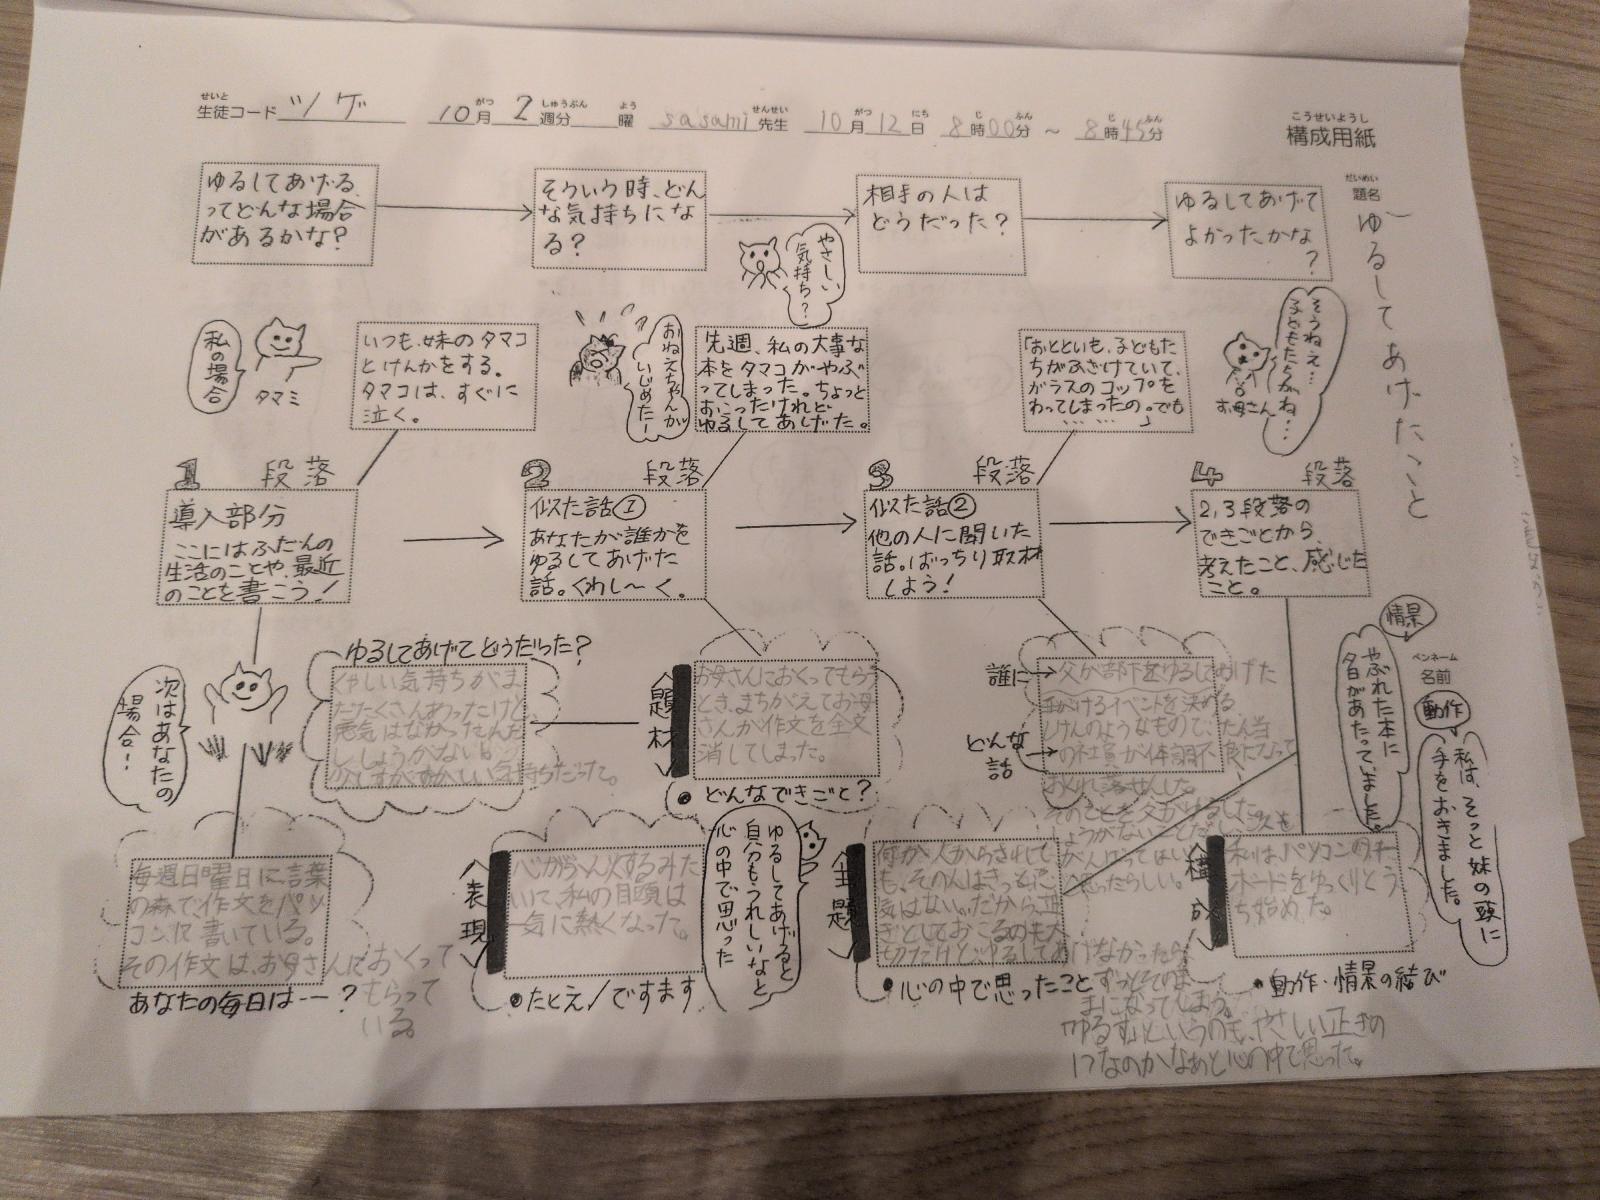 生徒コード ツゲ 10月 2週分 曜 sasami先生 10月12日 8時00分 〜 8時45分
せいと がつ しゅうぶん よう せんせい がつ にち じ ふん じ ふん
こうせいようし
構成用紙
だいめい
題名
ゆるしてあげたこと
ゆるしてあげる、
ってどんな場合
があるかな?
そういう時、どん
な気持ちにな
る?
相手の人は
どうだった?
ゆるしてあげて
よかったかな
?
やさしい
気持ち?
私の場合
タマミ
いつも、妹のタマコ
とけんかをする。
タマコは、すぐに
泣く。
おねえちゃんが
いじめたー
先週、私の大事な
本をタマコがやぶ
ってしまった。ちょっと
おこったけれど
ゆるしてあげた。
「おとといも、子どもた
ちがふざけていて、
ガラスのコップを
わってしまったの。でも
……」
お母さん
そうねえ…
子どもたちがね…
1 段落
導入部分
ここにはふだんの
生活のことや、最近
のことを書こう!
2 段落
似た話①
あなたが誰かを
ゆるしてあげた
話。くわし〜く。
3 段落
似た話②
他の人に聞いた
話。ばっちり取材
しよう!
4 段落
2,3段落の
できごとから、
考えたこと、感じた
こと。
次はあなたの
場合!
ゆるしてあげてどうだった?
くやしい気持ちがま
だたくさんあったけど
悪気はなかったんだ
し、しょうがない。
題材
お母さんにおくってもらう
とき、まちがえてお母
さんが作文を全文
消してしまった。
どんなできごと?
誰に
父が部下をゆるしてあげた
どんな
話
手がけるイベントを決める
けんのようなもので、たん当
の社員が体調不良になって
そのことを父がゆるした。
しょうがないことだし、次も
情景
やぶれた本に
夕日があたっていました。
ペンネーム
名前
動作
私は、そっと妹の頭に
手をおきました。
毎週日曜日に、言葉
の森で、作文をパソ
コンで書いている。
その作文は、お母さんにおくって
もらって
いる。
あなたの毎日は……?
表現
心がふん火するみた
いで、私の目頭は
一気に熱くなった。
たとえ/ですます
ゆるしてあげると
自分もうれしいなと
心の中で思った
主題
何か人からされて
も、その人はきっと悪
気はない。だから、
おこるのも大
切だけど、ゆるしてあげなかったら
ずっとそのま
まになってしまう。
ゆるすというのも、やさしい正ぎの
1つなのかなあと心の中で思った。
心の中で思ったこと
構成
私は、パソコンのキー
ボードをゆっくりとう
ち始めた。
動作・情景の結び